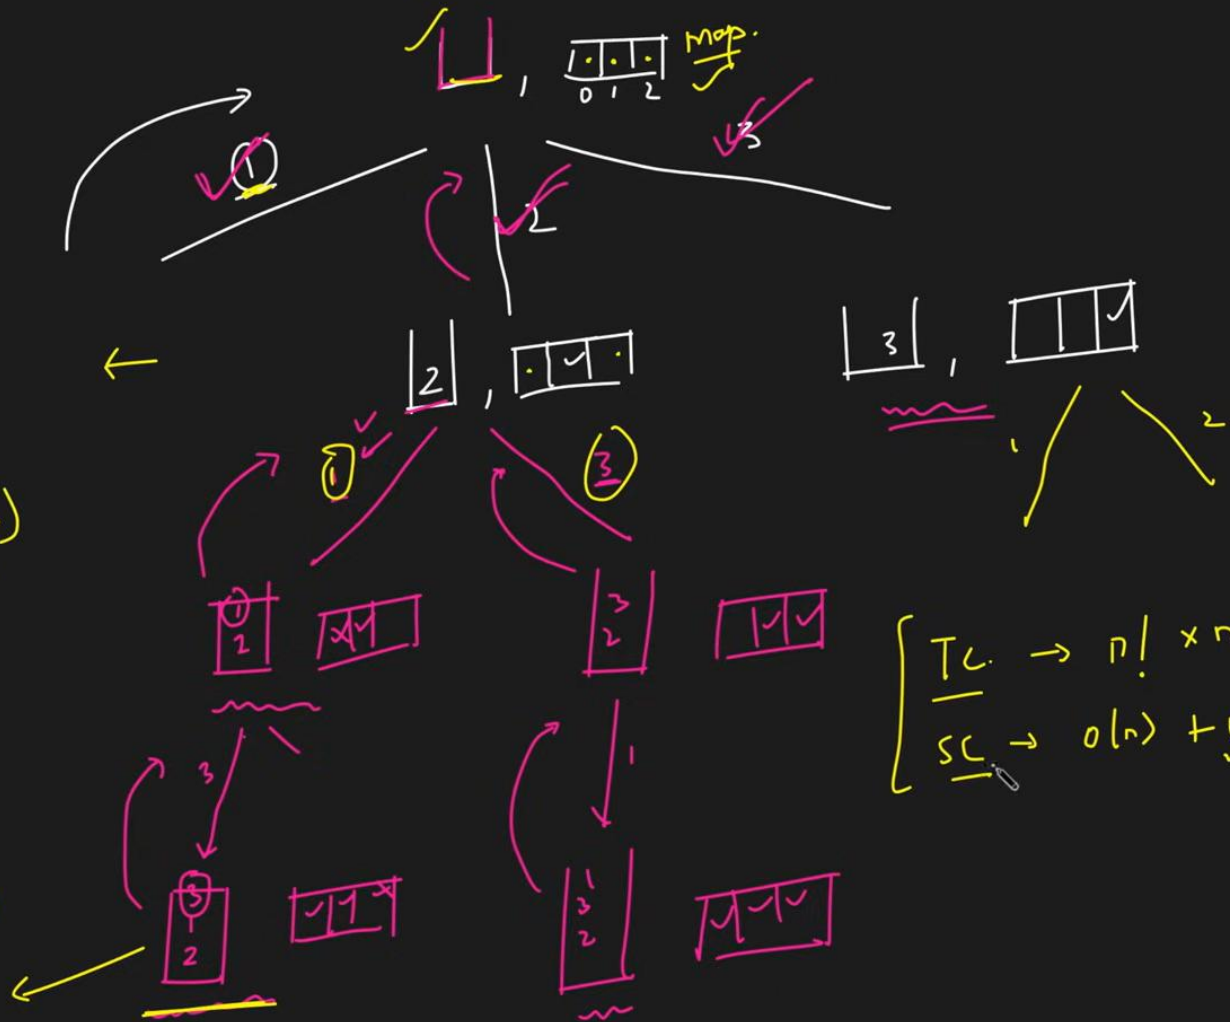 , map.
0 1 2
1 3
2
2 , 3 ,
1 3 1 2
1 3
2 2
TC. → n! x n
SC → O(n) +
3 1
3 1
1 3
2 2